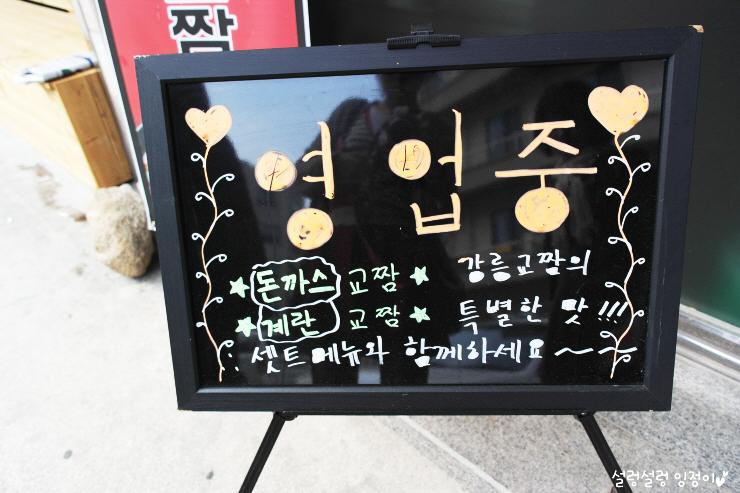 짬
영업중
돈까스 교짬 강릉교짤의
계란 교짬 특별한 맛!!!
: 셋트메뉴와 함께하세요~~
설렁설렁 잉정이